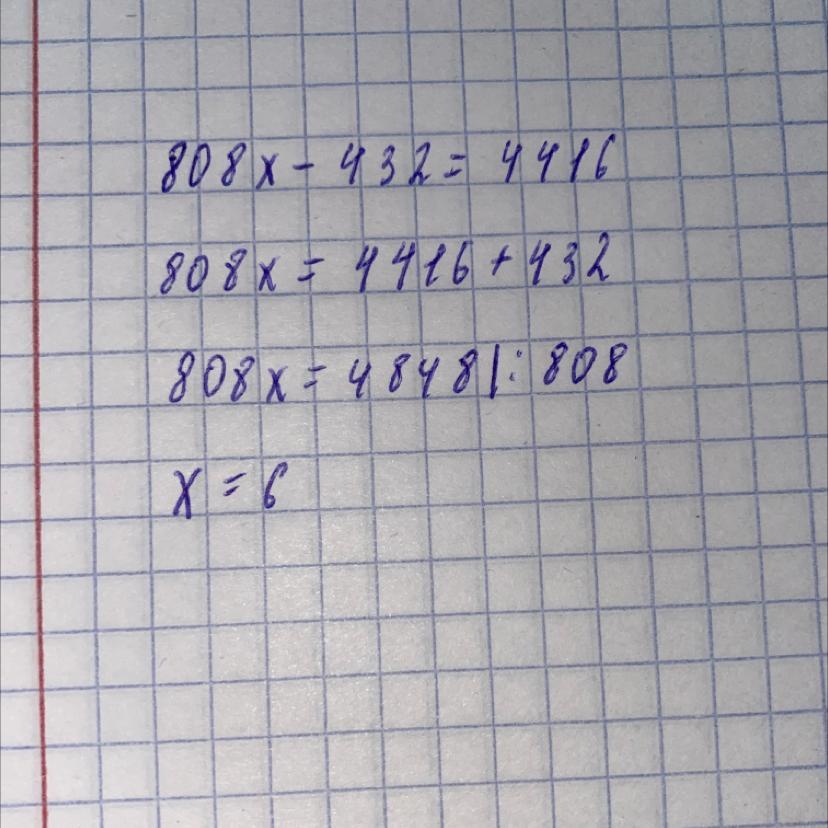 808x - 432 = 4416
808x = 4416 + 432
808x = 4848 | : 808
x = 6